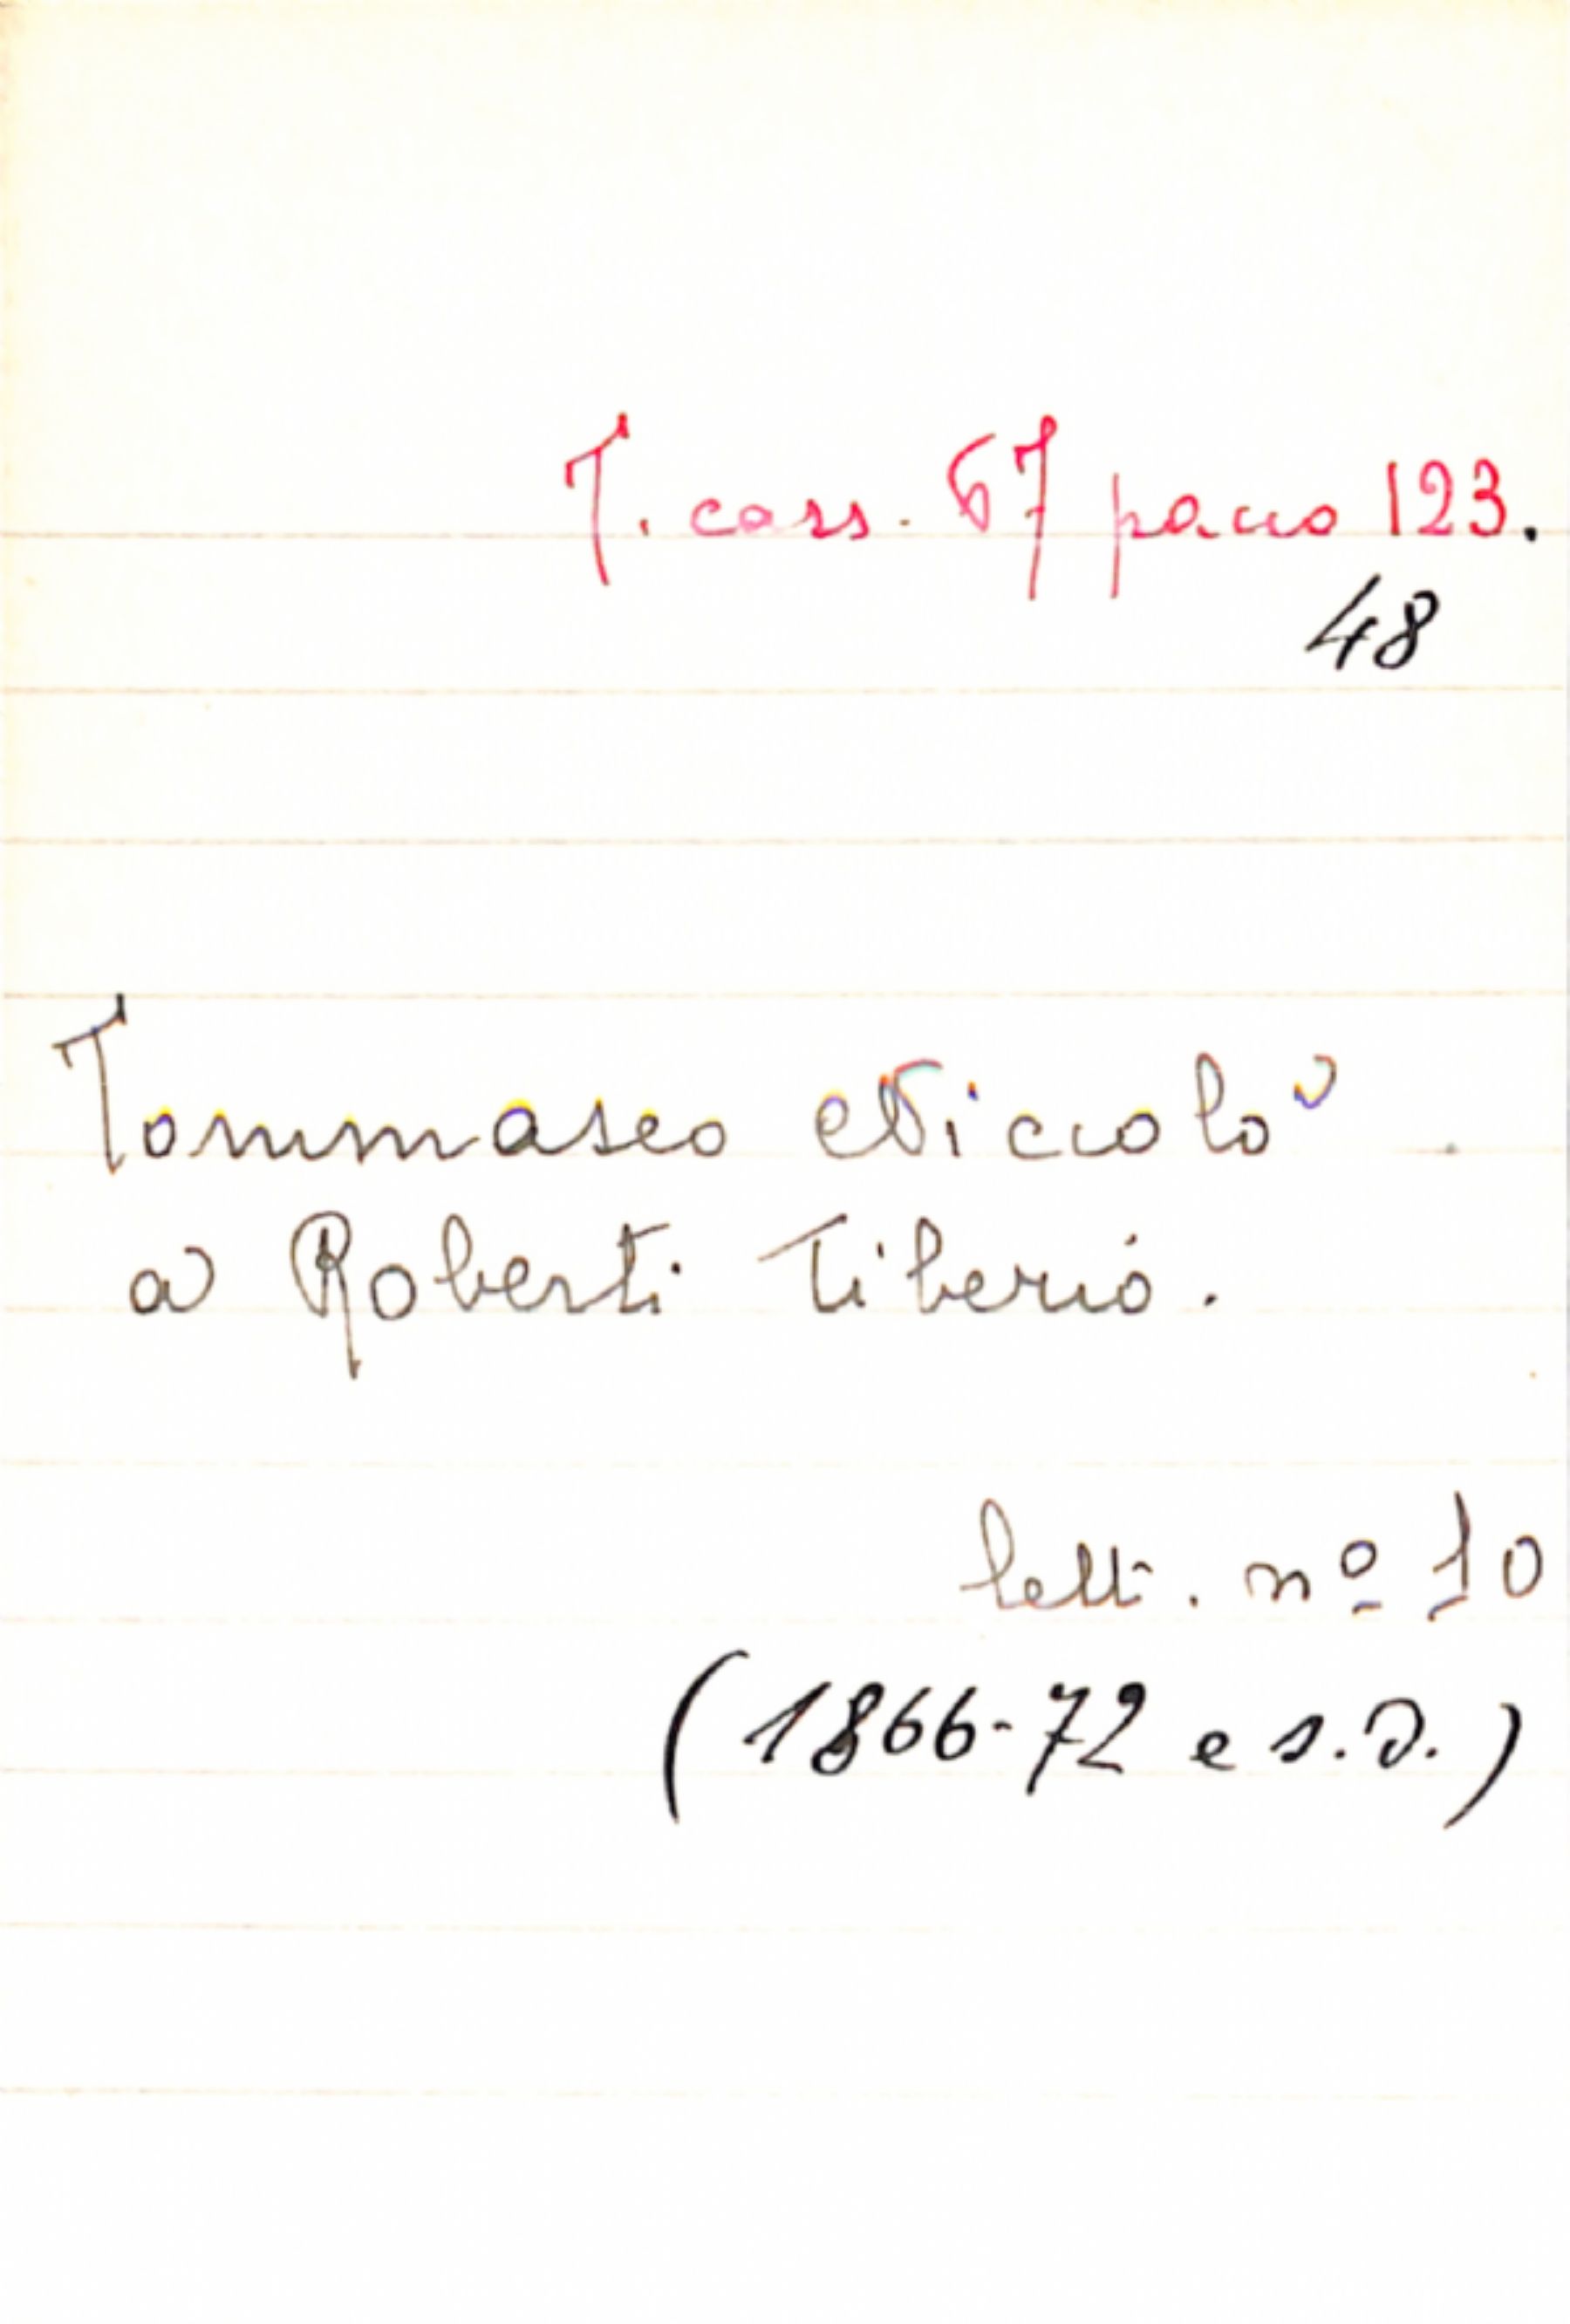 T. cass. 67 pacco 123.
48
Tommaseo Niccolò
a Roberti Tiberio.
lett. nº 10
(1866-72 e s.d.)